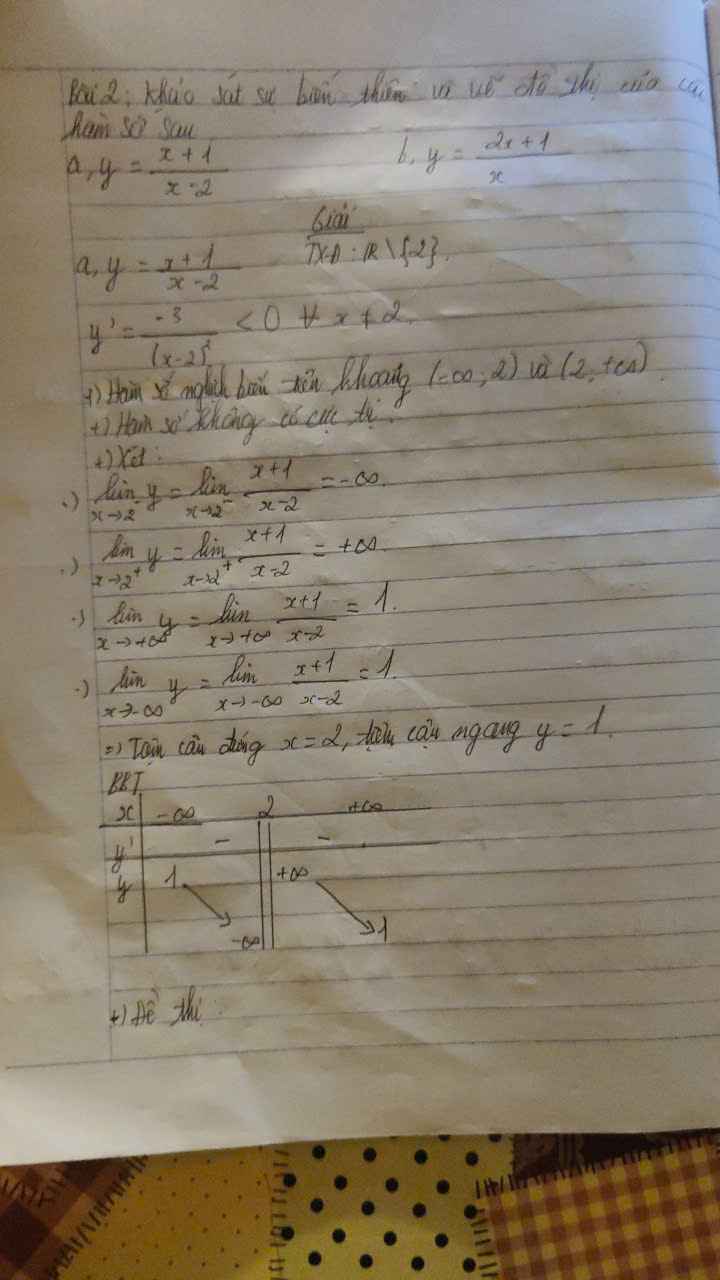 Bài 2: Khảo sát sự biến thiên và vẽ đồ thị của các
hàm số sau
a, y = (x + 1)/(x - 2) b, y = (2x + 1)/x
Giải
a, y = (x + 1)/(x - 2) TXĐ: ℝ \ {2}.
y' = -3/(x-2)² < 0 ∀ x ≠ 2.
+) Hàm số nghịch biến trên khoảng (-∞; 2) và (2, +∞).
+) Hàm số không có cực trị.
+) Xét:
.) lim x→2⁻ y = lim x→2⁻ (x+1)/(x-2) = -∞.
.) lim x→2⁺ y = lim x→2⁺ (x+1)/(x-2) = +∞.
.) lim x→+∞ y = lim x→+∞ (x+1)/(x-2) = 1.
.) lim x→-∞ y = lim x→-∞ (x+1)/(x-2) = 1.
=) Tiệm cận đứng x = 2, tiệm cận ngang y = 1.
BBT
x -∞ 2 +∞
y' - -
y 1 +∞
-∞ 1
+) Đồ thị: